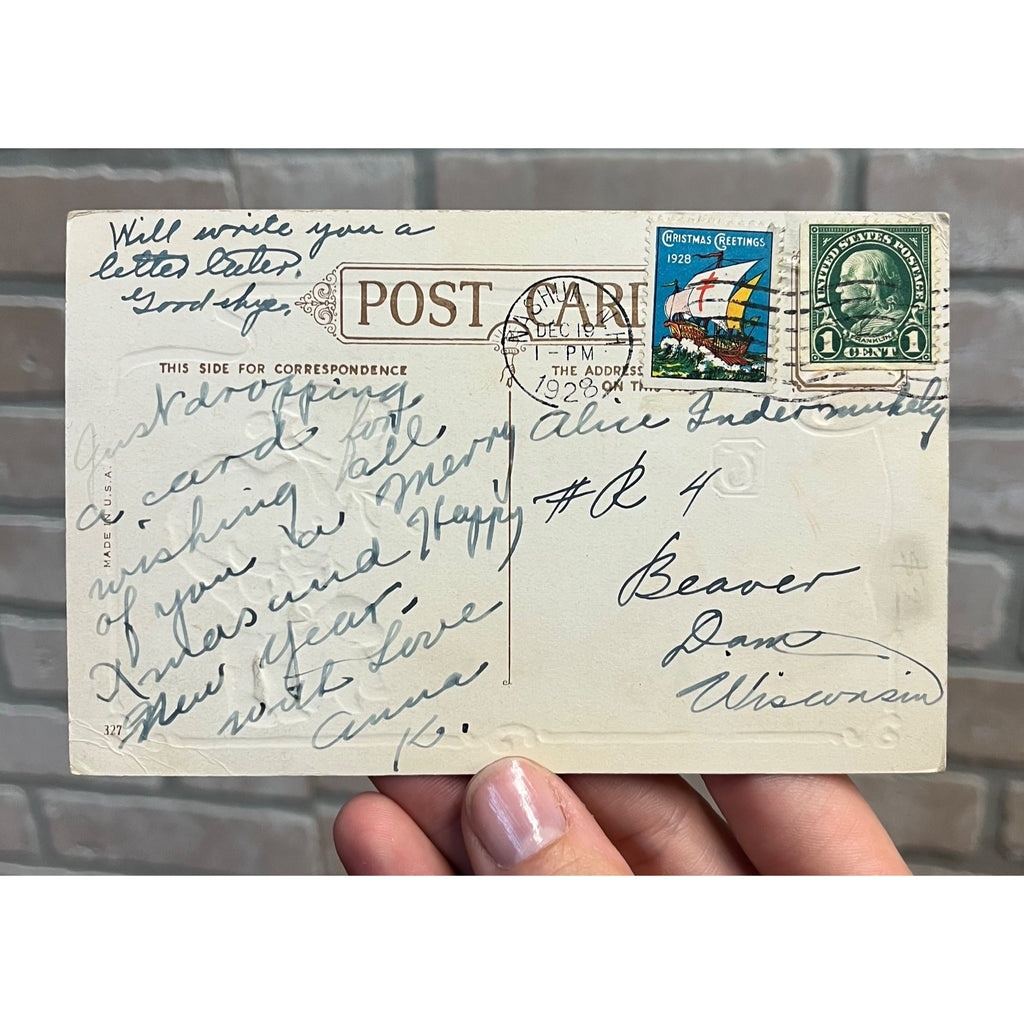 Will write you a
letter later.
Goodbye.
POST CARD
THIS SIDE FOR CORRESPONDENCE
THE ADDRESS
ON THIS
NASHUA N.H.
DEC 19
1-PM
1928
CHRISTMAS GREETINGS
1928
UNITED STATES POSTAGE
FRANKLIN
1 CENT 1
Just dropping
a card for
wishing all
of you a Merry
Xmas and Happy
New Year.
with Love
Anna
K.
Alice Indermuhely
#R 4
Beaver
Dam
Wisconsin
MADE IN U.S.A.
327